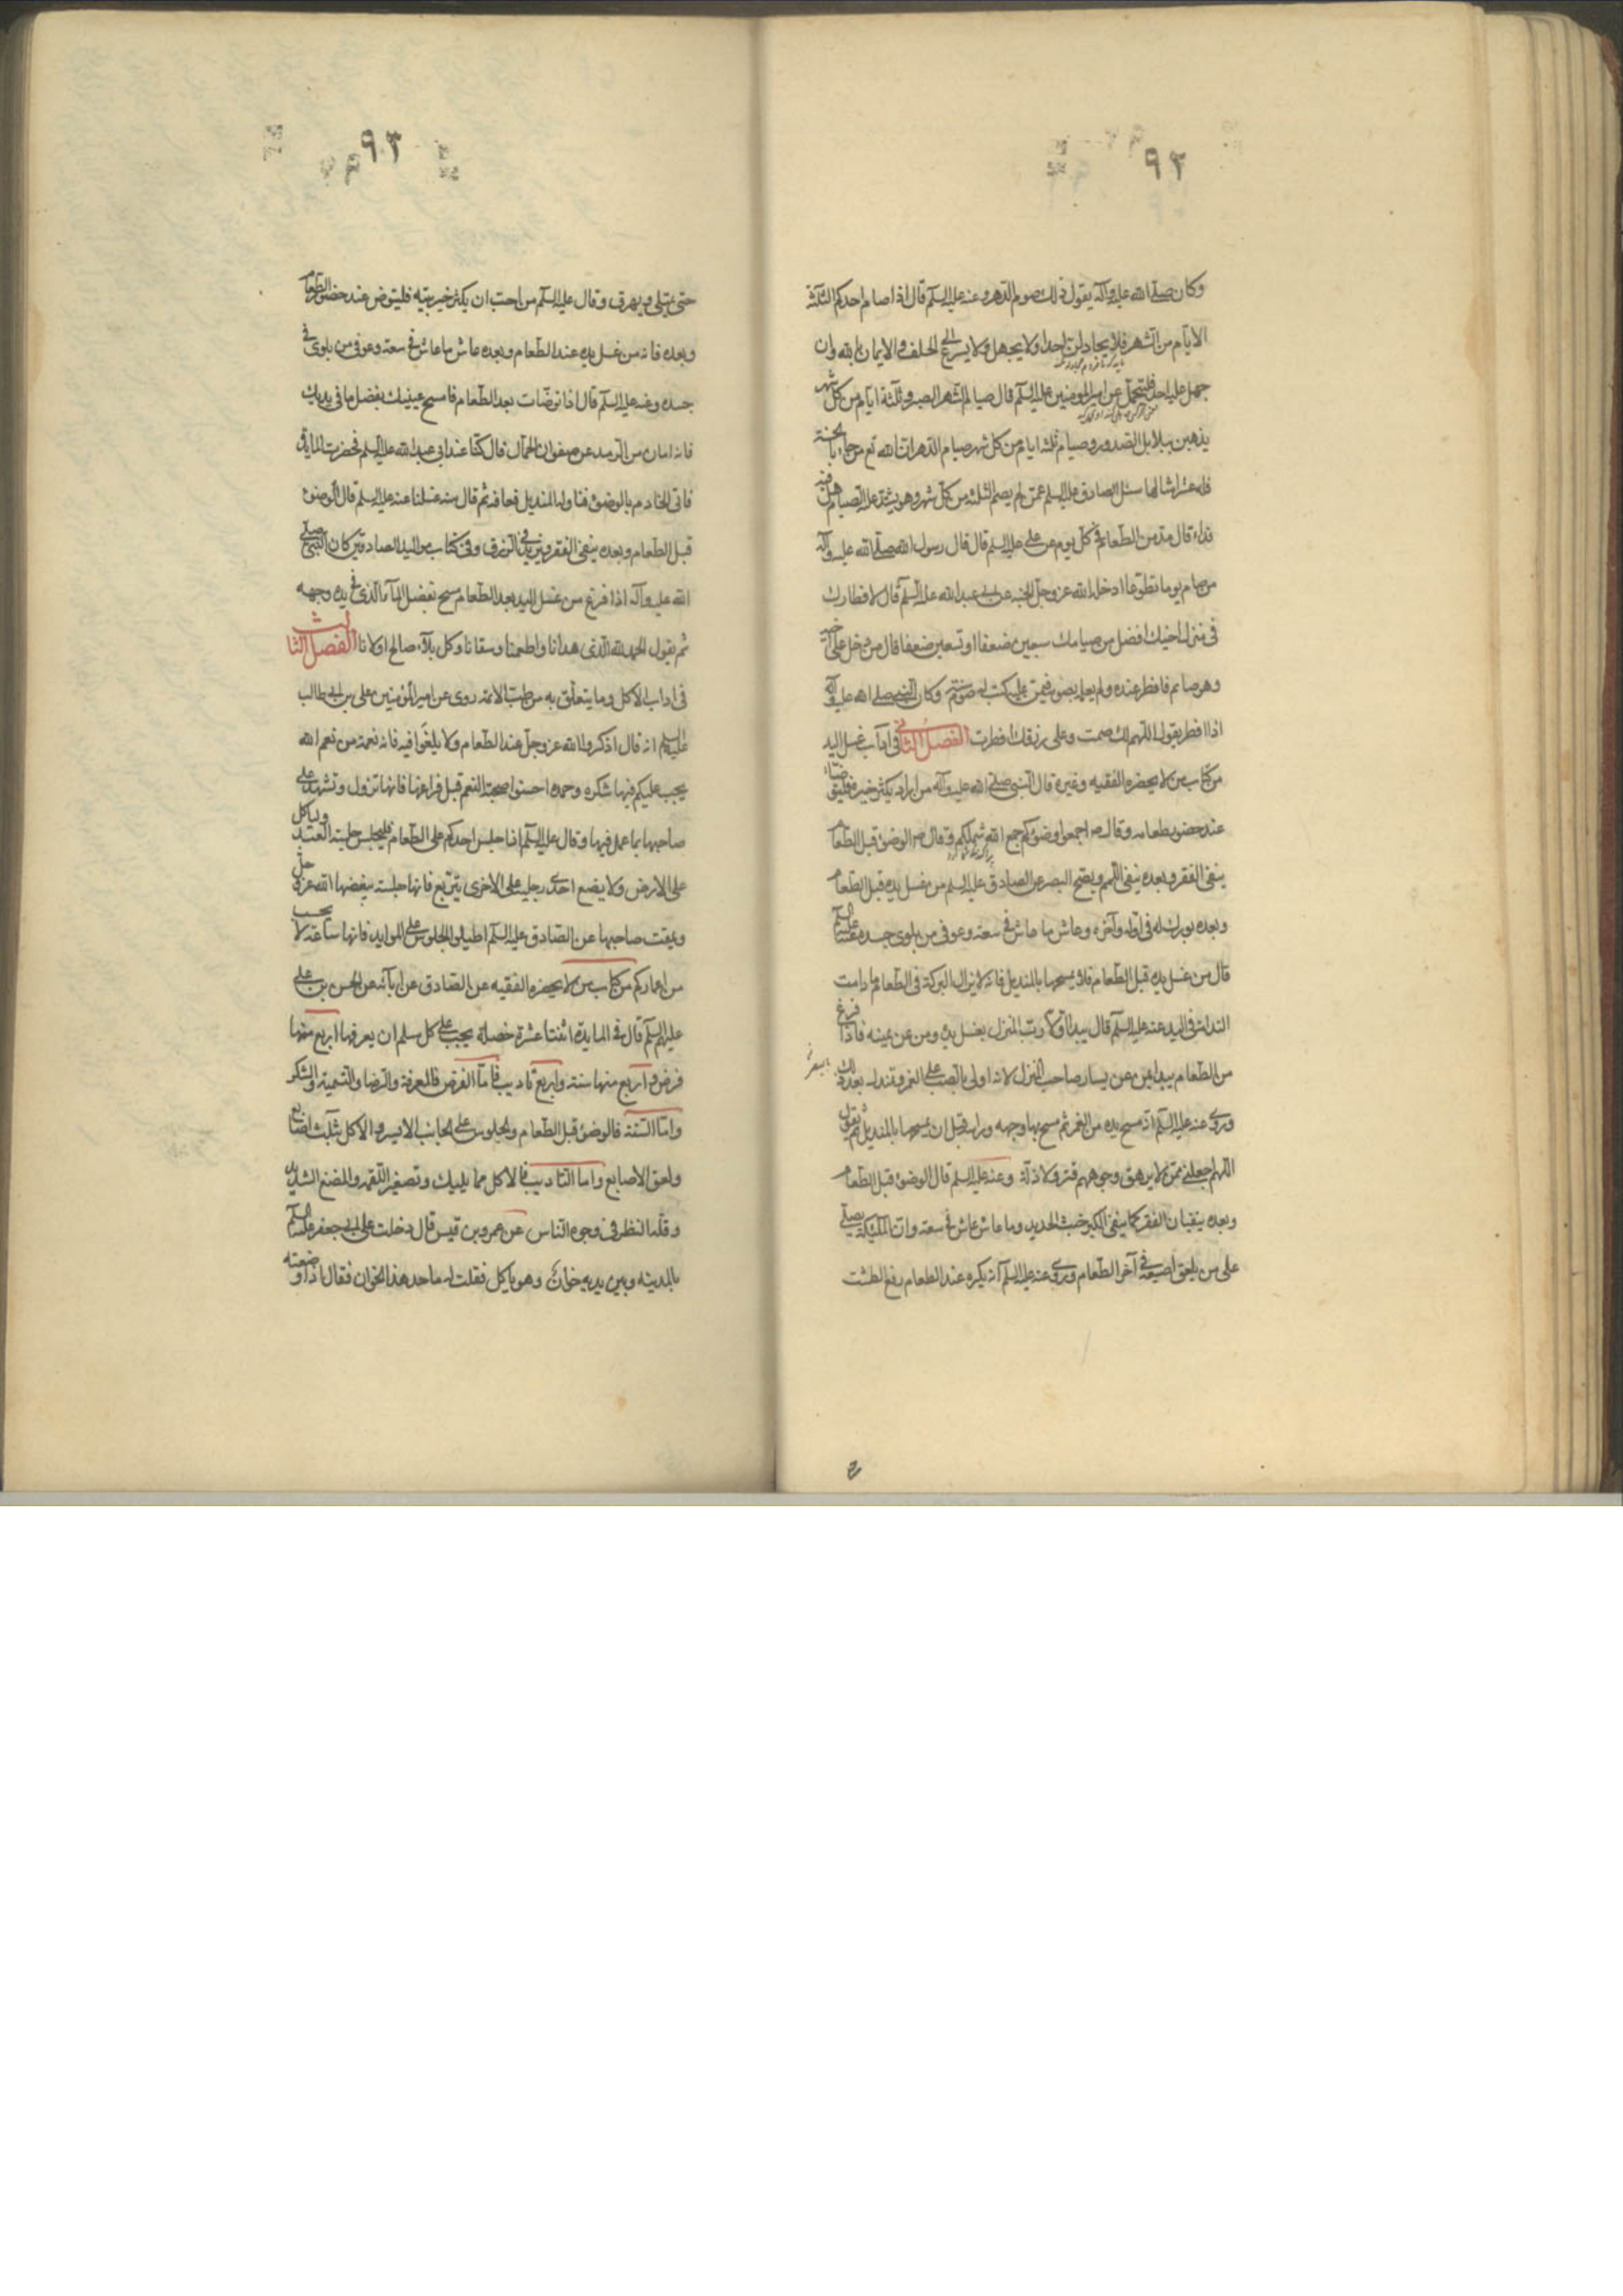 ٩٢
وكان صلى الله عليه وآله يقول ذلك صوم الدهر وعنه عليه السلم قال اذا صام احدكم الثلثة
الايام من الشهر فلا يجادلن احدا ولا يجهل ولا يسرع الى الحلف والايمان بالله وان
جهل عليه احد فليتحمل عن امير المومنين عليه السلم قال صيام الشهر الصبر وثلثة ايام من كل شهر
يذهبن ببلابل الصدور وصيام ثلثة ايام من كل شهر صيام الدهر ان الله تع من جاء بالحسنة
فله عشر امثالها سئل الصادق عليه السلم عمن لم يصم الثلثة من كل شهر وهو يشتد عليه الصيام هل فيه
فداء قال مد من الطعام في كل يوم عن علي عليه السلم قال قال رسول الله صلى الله عليه وآله
من صام يوما تطوعا ادخله الله عز وجل الجنة عن ابي عبد الله عليه السلم قال لافطارك
في منزل اخيك افضل من صيامك سبعين ضعفا او تسعين ضعفا قال من دخل على اخيه
وهو صائم فافطر عنده ولم يعلمه بصومه فيمن عليه كتب له صوم سنة وكان النبي صلى الله عليه وآله
اذا افطر يقول اللهم لك صمت وعلى رزقك افطرت الفصل الثاني في اداب غسل اليد
من كتاب من لا يحضره الفقيه وغيره قال النبي صلى الله عليه وآله من اراد يكثر خيره فليتوضأ
عند حضور طعامه وقال ص اجمعوا وضوئكم جمع الله شملكم وقال ص الوضوء قبل الطعام
ينفي الفقر وبعده ينفي اللمم ويصح البصر عن الصادق عليه السلم من يغسل يده قبل الطعام
وبعده بورك له في اوله وآخره وعاش ما عاش في سعة وعوفي من بلوى جسده عنه عليه السلم
قال من غسل يده قبل الطعام فلا يمسحها بالمنديل فانه لا يزال البركة في الطعام ما دامت
النداوة في اليد عنه عليه السلم قال يبدأ اولا رب المنزل يغسل يده ومن عن يمينه فاذا فرغ
من الطعام يبدا بمن عن يسار صاحب المنزل لانه اولى بالصبر على الغمر وتمندل بعد ذلك
وروى عنه عليه السلم انه مسح يده من الغمر ثم مسح بها وجهه وراسه قبل ان يمسحها بالمنديل ثم يقول
اللهم اجعلني ممن لا يرهق وجوههم قتر ولا ذلة وعنه عليه السلم قال الوضوء قبل الطعام
وبعده ينفيان الفقر كما ينفي الكير خبث الحديد وما عاش عاش في سعة وان الملئكة يصلي
على من يلعق اصبعه في آخر الطعام وروى عنه عليه السلم انه يكره عند الطعام رفع الطشت
٩٣
حتى يمتلي ويهرق وقال عليه السلم من احب ان يكثر خير بيته فليتوض عند حضور الطعام
وبعده فانه من غسل يده عند الطعام وبعده عاش ما عاش في سعة وعوفي من بلوى في
جسده وعنه عليه السلم قال اذا توضات بعد الطعام فامسح عينيك بفضل ما في يديك
فانه امان من الرمد عن صفوان الجمال قال كنا عند ابي عبد الله عليه السلم فحضرت المائدة
فاتى الخادم بالوضوء فناوله المنديل فعافه ثم قال منه غسلنا عنه عليه السلم قال الوضوء
قبل الطعام وبعده ينفي الفقر ويزيد في الرزق وفي كتاب مواليد الصادقين كان النبي صلى
الله عليه وآله اذا فرغ من غسل اليد بعد الطعام مسح بفضل الماء الذي في يده وجهه
ثم يقول الحمد لله الذي هدانا واطعمنا وسقانا وكل بلاء صالح اولانا الفصل الثالث
في اداب الاكل وما يتعلق به من طب الائمة روى عن امير المؤمنين علي بن ابي طالب
عليه السلم انه قال اذكروا الله عز وجل عند الطعام ولا يلغوا فيه فانه نعمة من نعم الله
يجب عليكم فيها شكره وحمده احسنوا صحبة النعم قبل فراقها فانها تزول وتشهد على
صاحبها بما عمل فيها وقال عليه السلم اذا جلس احدكم على الطعام فليجلس جلسة العبد ولياكل
على الارض ولا يضع احدى رجليه على الاخرى يتربع فانها جلسة يبغضها الله عز وجل
ويمقت صاحبها عن الصادق عليه السلم اطيلوا الجلوس على الموايد فانها ساعة لا يحسب
من اعماركم من كتاب من لا يحضره الفقيه عن الصادق عن ابائه عن الحسن بن علي
عليهم السلم قال في المايدة اثنتا عشرة خصلة يجب على كل مسلم ان يعرفها اربع منها
فرض واربع منها سنة واربع تاديب فاما الفرض فالمعرفة والرضا والتسمية والشكر
واما السنة فالوضوء قبل الطعام والجلوس على الجانب الايسر والاكل بثلث اصابع
ولعق الاصابع واما التاديب فالاكل مما يليك وتصغير اللقمة والمضغ الشديد
وقلة النظر في وجوه الناس عن عمرو بن قيس قال دخلت على ابي جعفر عليه السلم
بالمدينة وبين يديه خوان وهو ياكل فقلت له ما حد هذا الخوان فقال اذا وضعته